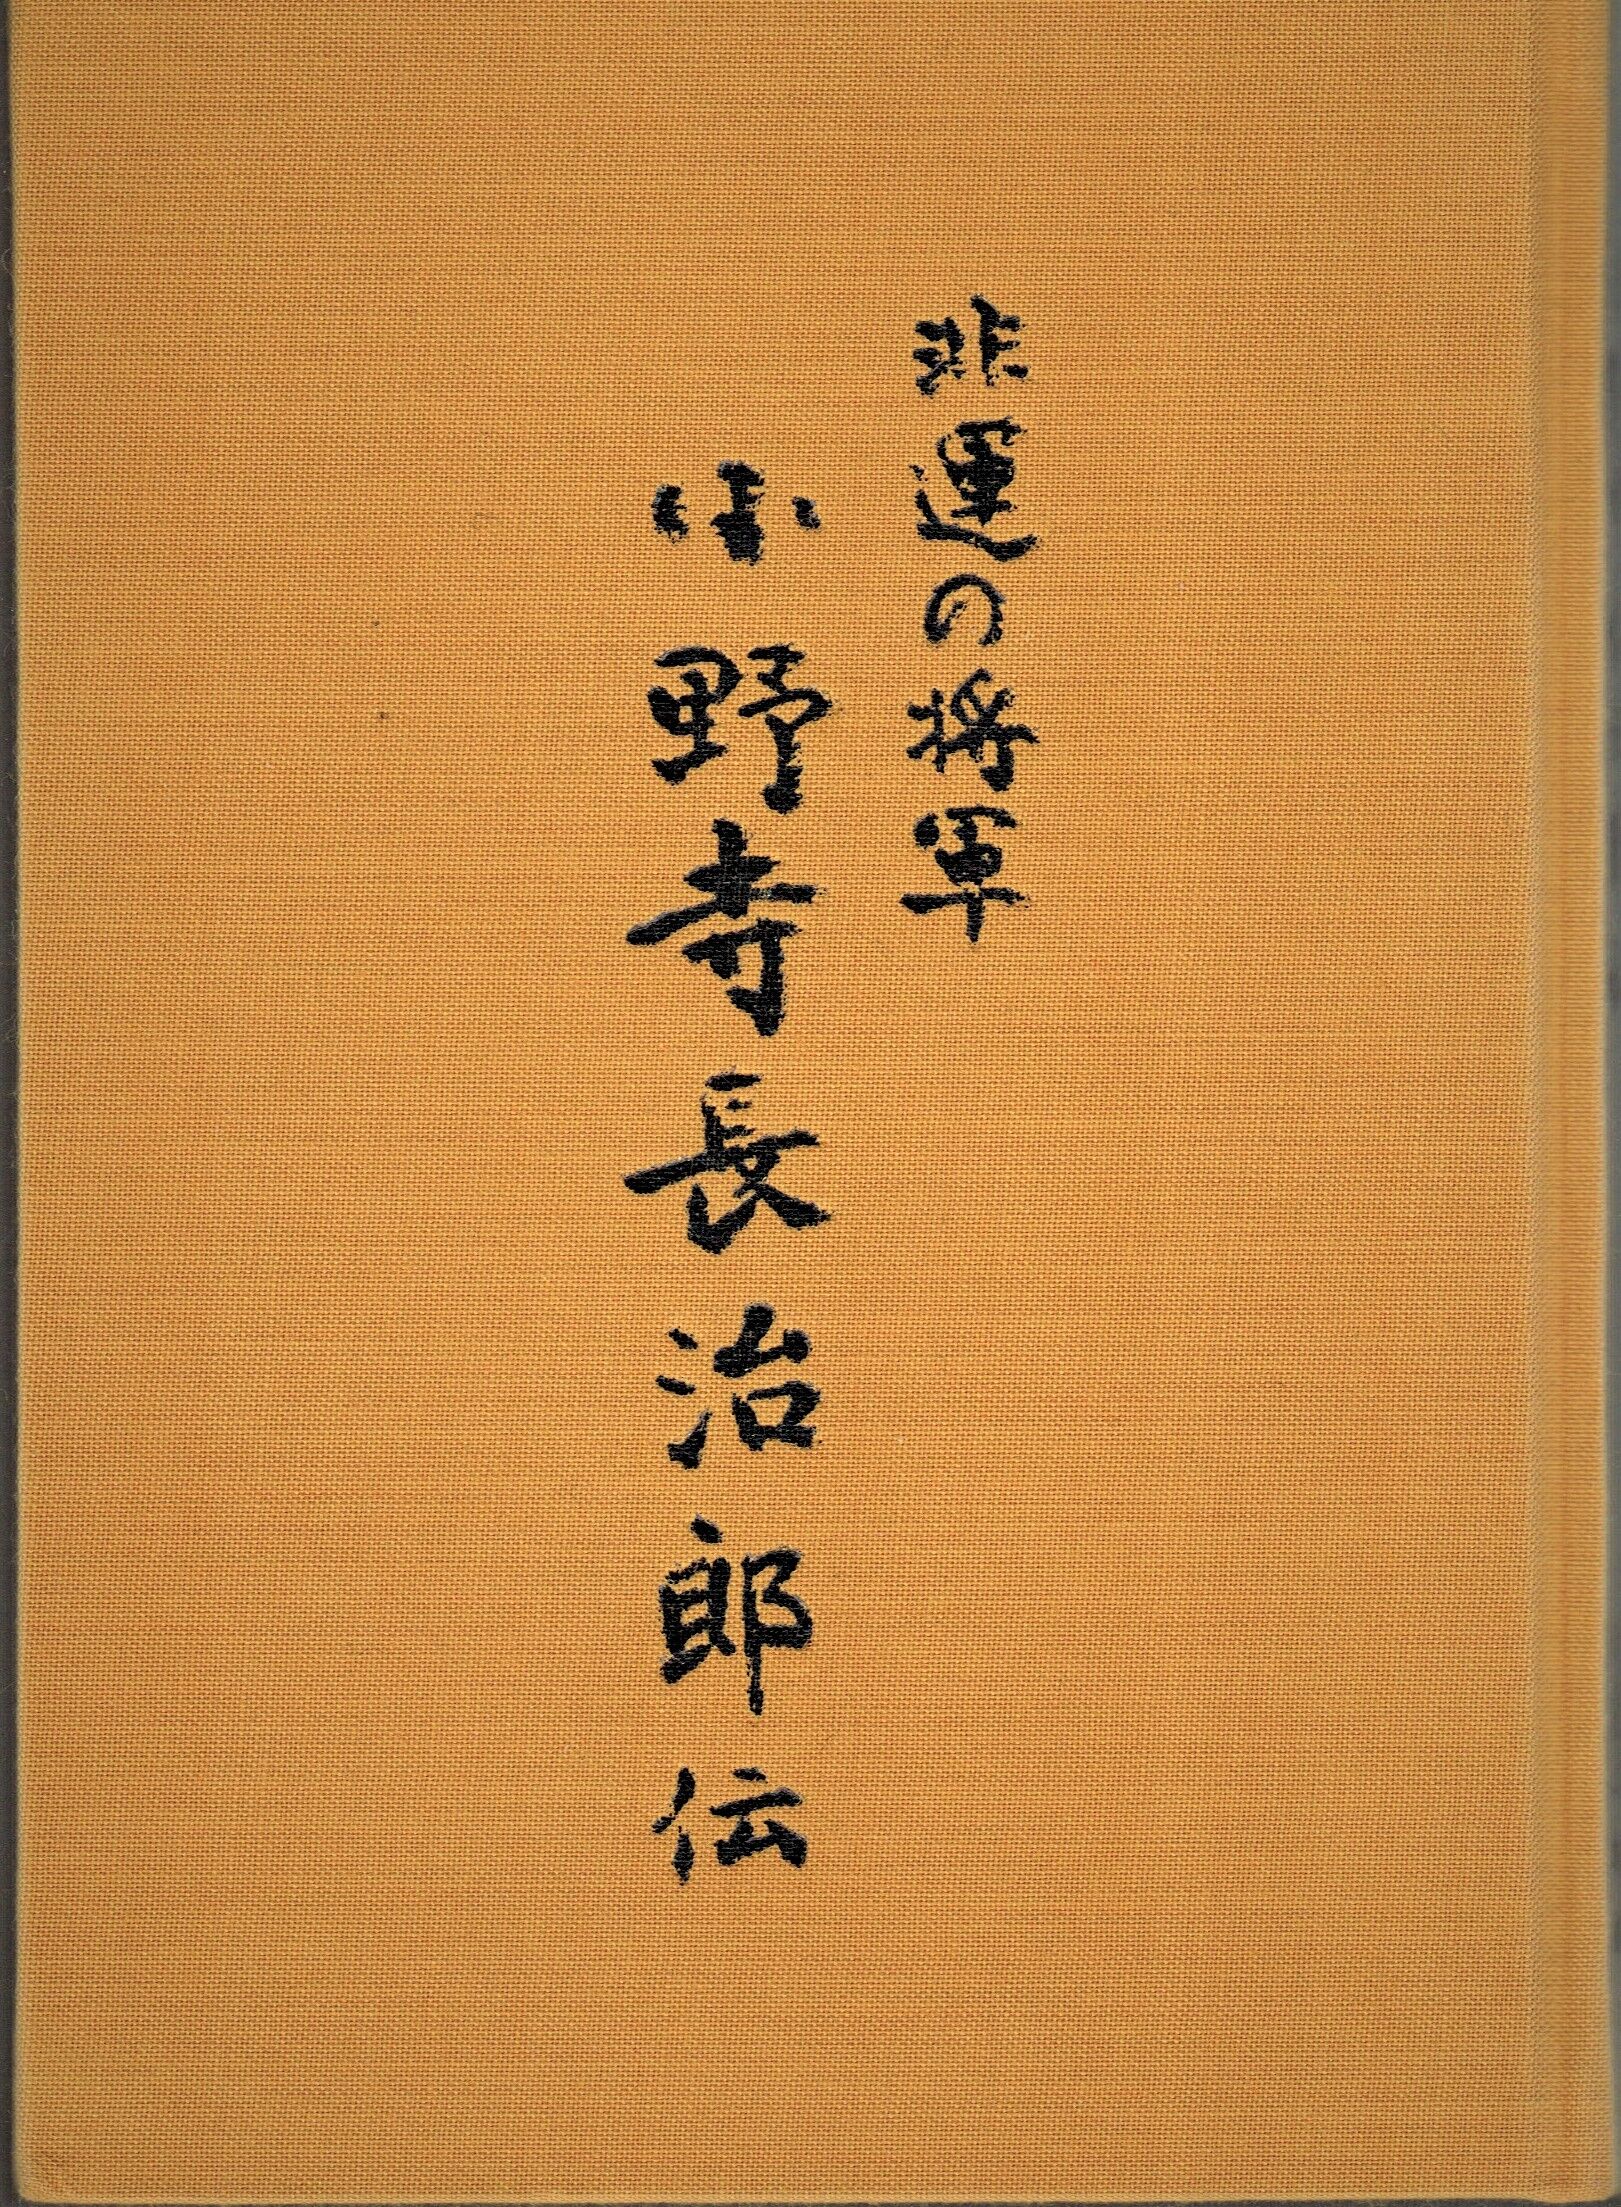 非運の将軍
小野寺長治郎伝